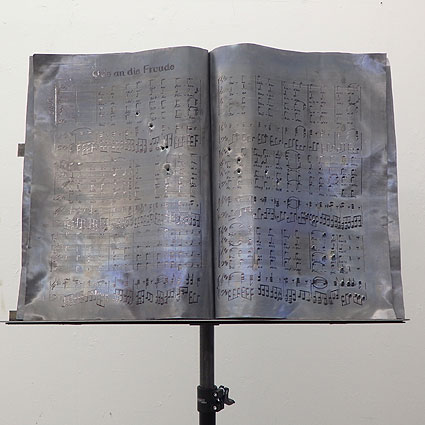 Ode an die Freude